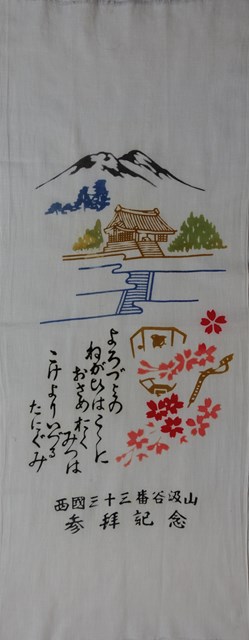 よろづよの
ねがひはこゝに
おさめおく
みづは
こけよりいづる
たにぐみ
西國三十三番谷汲山
参拝記念